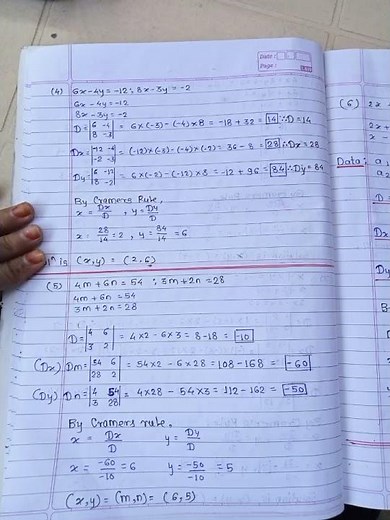 Date :
Page :
(4) 6x-4y=-12 ; 8x-3y=-2
6x-4y=-12
8x-3y=-2
D= |6 -4 8 -3| = 6×(-3)-(-4)×8 = -18+32 = 14 ∴D=14
Dx= |-12 -4 -2 -3| = (-12)×(-3)-(-4)×(-2)= 36-8 = 28 ∴Dx=28
Dy= |6 -12 8 -2| = 6×(-2)-(-12)×8 = -12+96 = 84 ∴Dy=84
By Cramers Rule,
x = Dx/D , y = Dy/D
x = 28/14 = 2 , y = 84/14 = 6
is (x,y) = (2,6)
(5) 4m+6n=54 ; 3m+2n=28
4m+6n=54
3m+2n=28
D= |4 6 3 2| = 4×2-6×3 = 8-18 = -10
(Dx) Dm= |54 6 28 2| = 54×2-6×28 = 108-168 = -60
(Dy) Dn= |4 54 3 28| = 4×28-54×3 = 112-162 = -50
By Cramers rule.
x = Dx/D y = Dy/D
x = -60/-10 = 6 y = -50/-10 = 5
(x,y) = (m,n) = (6,5)
(6) 2x
2x+
x -
Data: a₁
a₂
D
Dx
Dy